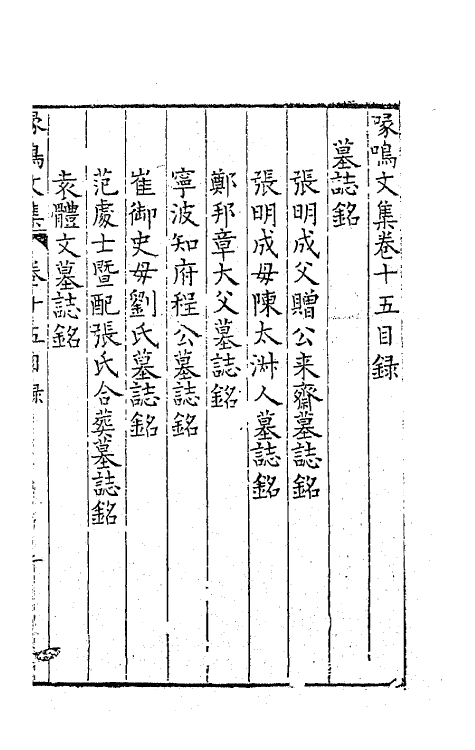 喙鳴文集卷十五目録
墓誌銘
張明成父贈公来齋墓誌銘
張明成母陳太淑人墓誌銘
鄭邦章大父墓誌銘
寧波知府程公墓誌銘
崔御史母劉氏墓誌銘
范處士暨配張氏合葬墓誌銘
袁體文墓誌銘
喙鳴文集 卷十五目録 一